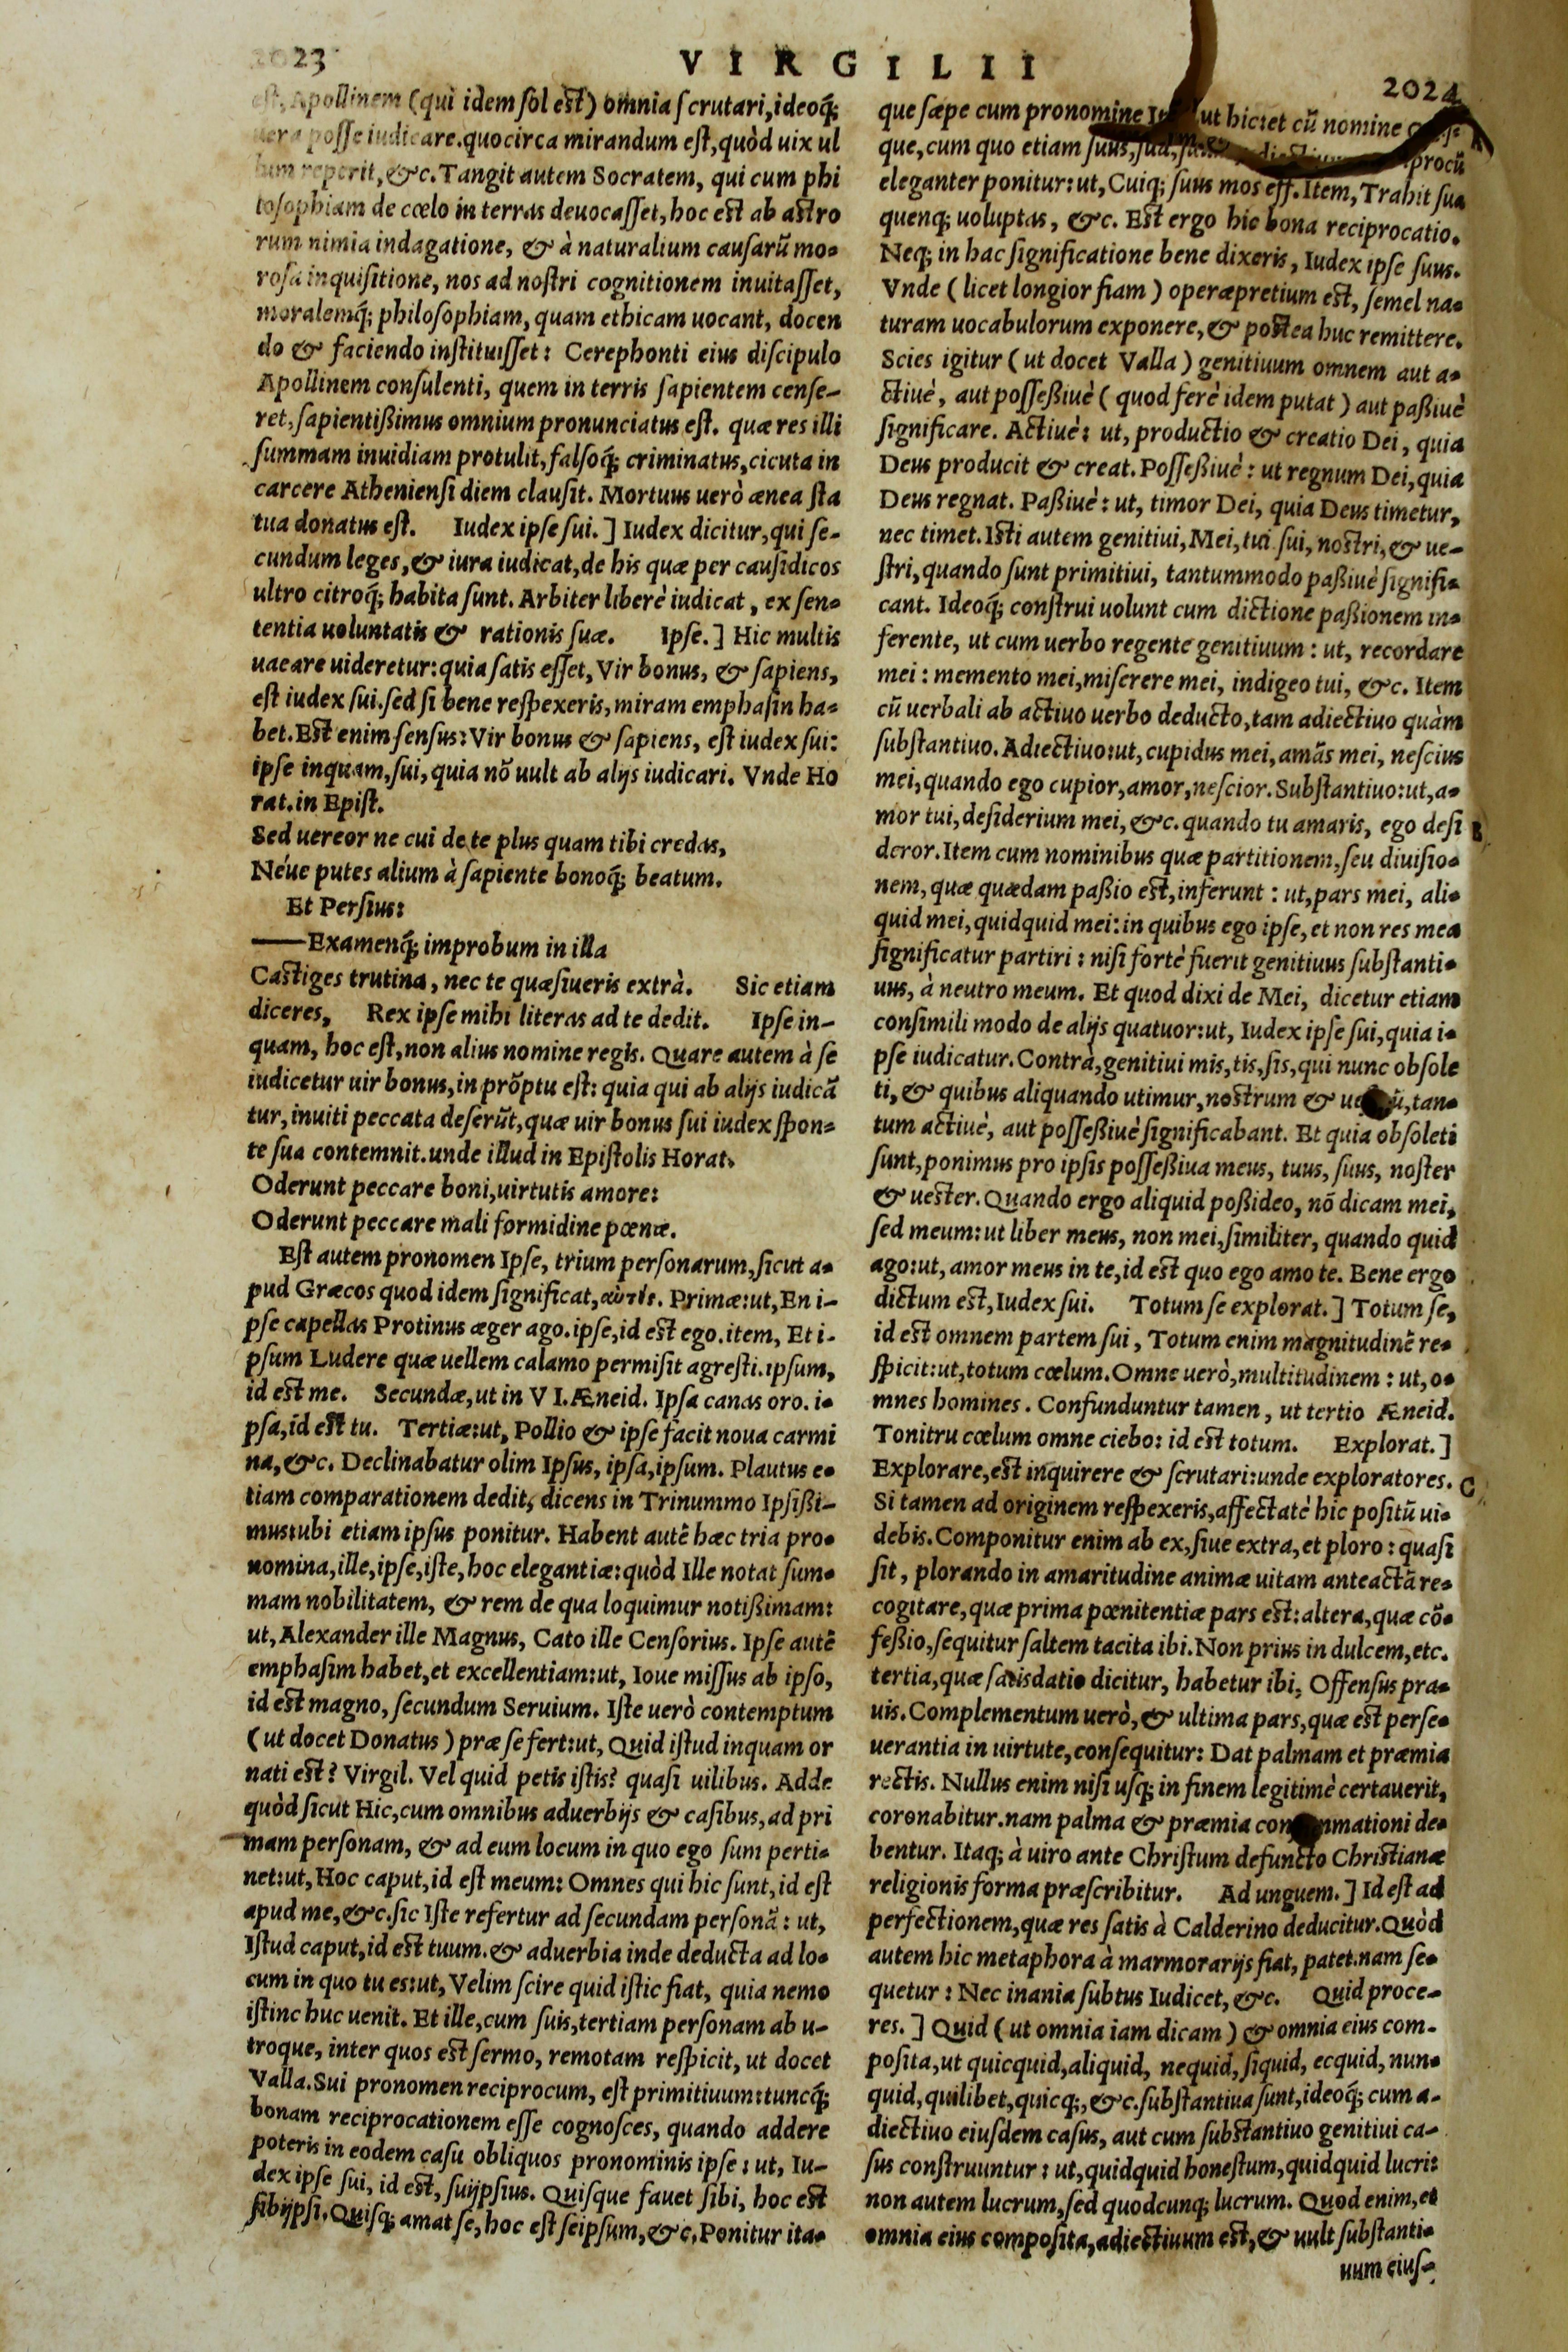 2023
VIRGILII
2024
est, Apollinem (qui idem sol est) omnia scrutari, ideoq́;
uera posse iudicare. quocirca mirandum est, quòd uix ul
lum reperit, &c. Tangit autem Socratem, qui cum phi
losophiam de cœlo in terras deuocasset, hoc est ab astro
rum nimia indagatione, & à naturalium causarũ mo-
rosa inquisitione, nos ad nostri cognitionem inuitasset,
moralemq́; philosophiam, quam ethicam uocant, docen
do & faciendo instituisset: Cerephonti eius discipulo
Apollinem consulenti, quem in terris sapientem cense-
ret, sapientißimus omnium pronunciatus est. quæ res illi
summam inuidiam protulit, falsoq́; criminatus, cicuta in
carcere Atheniensi diem clausit. Mortuus uerò ænea sta
tua donatus est. Iudex ipse sui.] Iudex dicitur, qui se-
cundum leges, & iura iudicat, de his quæ per causidicos
ultro citroq́; habita sunt. Arbiter liberè iudicat, ex sen-
tentia uoluntatis & rationis suæ. Ipse.] Hic multis
uacare uideretur: quia satis esset, Vir bonus, & sapiens,
est iudex sui. sed si bene respexeris, miram emphasin ha-
bet. Est enim sensus: Vir bonus & sapiens, est iudex sui:
ipse inquam, sui, quia nõ uult ab alijs iudicari. Vnde Ho
rat. in Epist.
Sed uereor ne cui de te plus quam tibi credas,
Néue putes alium à sapiente bonoq́; beatum.
Et Persius:
—Examenq́; improbum in illa
Castiges trutina, nec te quæsiueris extrà. Sic etiam
diceres, Rex ipse mihi literas ad te dedit. Ipse in-
quam, hoc est, non alius nomine regis. Quare autem à se
iudicetur uir bonus, in prõptu est: quia qui ab alijs iudicã
tur, inuiti peccata deserũt, quæ uir bonus sui iudex spon-
te sua contemnit. unde illud in Epistolis Horat.
Oderunt peccare boni, uirtutis amore:
Oderunt peccare mali formidine pœnæ.
Est autem pronomen Ipse, trium personarum, sicut a-
pud Græcos quod idem significat, αὐτὸς. Primæ: ut, En i-
pse capellas Protinus æger ago. ipse, id est ego. item, Et i-
psum Ludere quæ uellem calamo permisit agresti. ipsum,
id est me. Secundæ, ut in VI. Æneid. Ipsa canas oro. i-
psa, id est tu. Tertiæ: ut, Pollio & ipse facit noua carmi
na, &c. Declinabatur olim Ipsus, ipsa, ipsum. Plautus e-
tiam comparationem dedit, dicens in Trinummo Ipsißi-
mus: ubi etiam ipsus ponitur. Habent autẽ hæc tria pro-
nomina, ille, ipse, iste, hoc elegantiæ: quòd Ille notat sum-
mam nobilitatem, & rem de qua loquimur notißimam:
ut, Alexander ille Magnus, Cato ille Censorius. Ipse autẽ
emphasim habet, et excellentiam: ut, Ioue missus ab ipso,
id est magno, secundum Seruium. Iste uerò contemptum
(ut docet Donatus) præ se fert: ut, Quid istud inquam or
nati est? Virgil. Vel quid petis istis? quasi uilibus. Adde
quòd sicut Hic, cum omnibus aduerbijs & casibus, ad pri
mam personam, & ad eum locum in quo ego sum perti-
net: ut, Hoc caput, id est meum: Omnes qui hic sunt, id est
apud me, &c. sic Iste refertur ad secundam personã: ut,
Istud caput, id est tuum. & aduerbia inde deducta ad lo-
cum in quo tu es: ut, Velim scire quid istic fiat, quia nemo
istinc huc uenit. Et ille, cum suis, tertiam personam ab u-
troque, inter quos est sermo, remotam respicit, ut docet
Valla. Sui pronomen reciprocum, est primitiuum: tuncq́;
bonam reciprocationem esse cognosces, quando addere
poteris in eodem casu obliquos pronominis ipse: ut, Iu-
dex ipse sui, id est, suijpsius. Quisque fauet sibi, hoc est
sibijpsi. Quisq; amat se, hoc est seipsum, &c. Ponitur ita-
que sæpe cum pronomine ut hic: et cũ nomine
que, cum quo etiam suus, sua, procũ
eleganter ponitur: ut, Cuiq; suus mos est. Item, Trahit sua
quenq; uoluptas, &c. Est ergo hic bona reciprocatio.
Neq; in hac significatione bene dixeris, Iudex ipse suus.
Vnde (licet longior fiam) operæpretium est, semel na-
turam uocabulorum exponere, & postea huc remittere.
Scies igitur (ut docet Valla) genitiuum omnem aut a-
ctiuè, aut posseßiuè (quod ferè idem putat) aut paßiuè
significare. Actiuè: ut, productio & creatio Dei, quia
Deus producit & creat. Posseßiuè: ut regnum Dei, quia
Deus regnat. Paßiuè: ut, timor Dei, quia Deus timetur,
nec timet. Isti autem genitiui, Mei, tui sui, nostri, & ue-
stri, quando sunt primitiui, tantummodo paßiuè signifi-
cant. Ideoq́; construi uolunt cum dictione paßionem in-
ferente, ut cum uerbo regente genitiuum: ut, recordare
mei: memento mei, miserere mei, indigeo tui, &c. Item
cũ uerbali ab actiuo uerbo deducto, tam adiectiuo quàm
substantiuo. Adiectiuo: ut, cupidus mei, amãs mei, nescius
mei, quando ego cupior, amor, nescior. Substantiuo: ut, a-
mor tui, desiderium mei, &c. quando tu amaris, ego desi
B
deror. Item cum nominibus quæ partitionem, seu diuisio-
nem, quæ quædam paßio est, inferunt: ut, pars mei, ali-
quid mei, quidquid mei: in quibus ego ipse, et non res mea
significatur partiri: nisi fortè fuerit genitiuus substanti-
uus, à neutro meum. Et quod dixi de Mei, dicetur etiam
consimili modo de alijs quatuor: ut, Iudex ipse sui, quia i-
pse iudicatur. Contrà, genitiui mis, tis, sis, qui nunc obsole
ti, & quibus aliquando utimur, nostrum & tan-
tum actiuè, aut posseßiuè significabant. Et quia obsoleti
sunt, ponimus pro ipsis posseßiua meus, tuus, suus, noster
& uester. Quando ergo aliquid poßideo, nõ dicam mei,
sed meum: ut liber meus, non mei, similiter, quando quid
ago: ut, amor meus in te, id est quo ego amo te. Bene ergo
dictum est, Iudex sui. Totum se explorat.] Totum se,
id est omnem partem sui, Totum enim magnitudinẽ re-
spicit: ut, totum cœlum. Omne uerò, multitudinem: ut, o-
mnes homines. Confunduntur tamen, ut tertio Æneid.
Tonitru cœlum omne ciebo: id est totum. Explorat.]
Explorare, est inquirere & scrutari: unde exploratores.
C
Si tamen ad originem respexeris, affectatè hic positũ ui-
debis. Componitur enim ab ex, siue extra, et ploro: quasi
sit, plorando in amaritudine animæ uitam anteactã re-
cogitare, quæ prima pœnitentiæ pars est: altera, quæ cõ-
feßio, sequitur saltem tacita ibi. Non prius in dulcem, etc.
tertia, quæ satisdatio dicitur, habetur ibi, Offensus pra-
uis. Complementum uerò, & ultima pars, quæ est perse-
uerantia in uirtute, consequitur: Dat palmam et præmia
rectis. Nullus enim nisi usq; in finem legitimè certauerit,
coronabitur. nam palma & præmia de-
bentur. Itaq; à uiro ante Christum defuncto Christianæ
religionis forma præscribitur. Ad unguem.] Id est ad
perfectionem, quæ res satis à Calderino deducitur. Quòd
autem hic metaphora à marmorarijs fiat, patet. nam se-
quetur: Nec inania subtus Iudicet, &c. Quid proce-
res.] Quid (ut omnia iam dicam) & omnia eius com-
posita, ut quicquid, aliquid, nequid, siquid, ecquid, nun-
quid, quilibet, quicq;, &c. substantiua sunt, ideoq́; cum a-
diectiuo eiusdem casus, aut cum substantiuo genitiui ca-
sus construuntur: ut, quidquid honestum, quidquid lucri:
non autem lucrum, sed quodcunq; lucrum. Quod enim, et
omnia eius composita, adiectiuum est, & uult substanti-
uum eius-